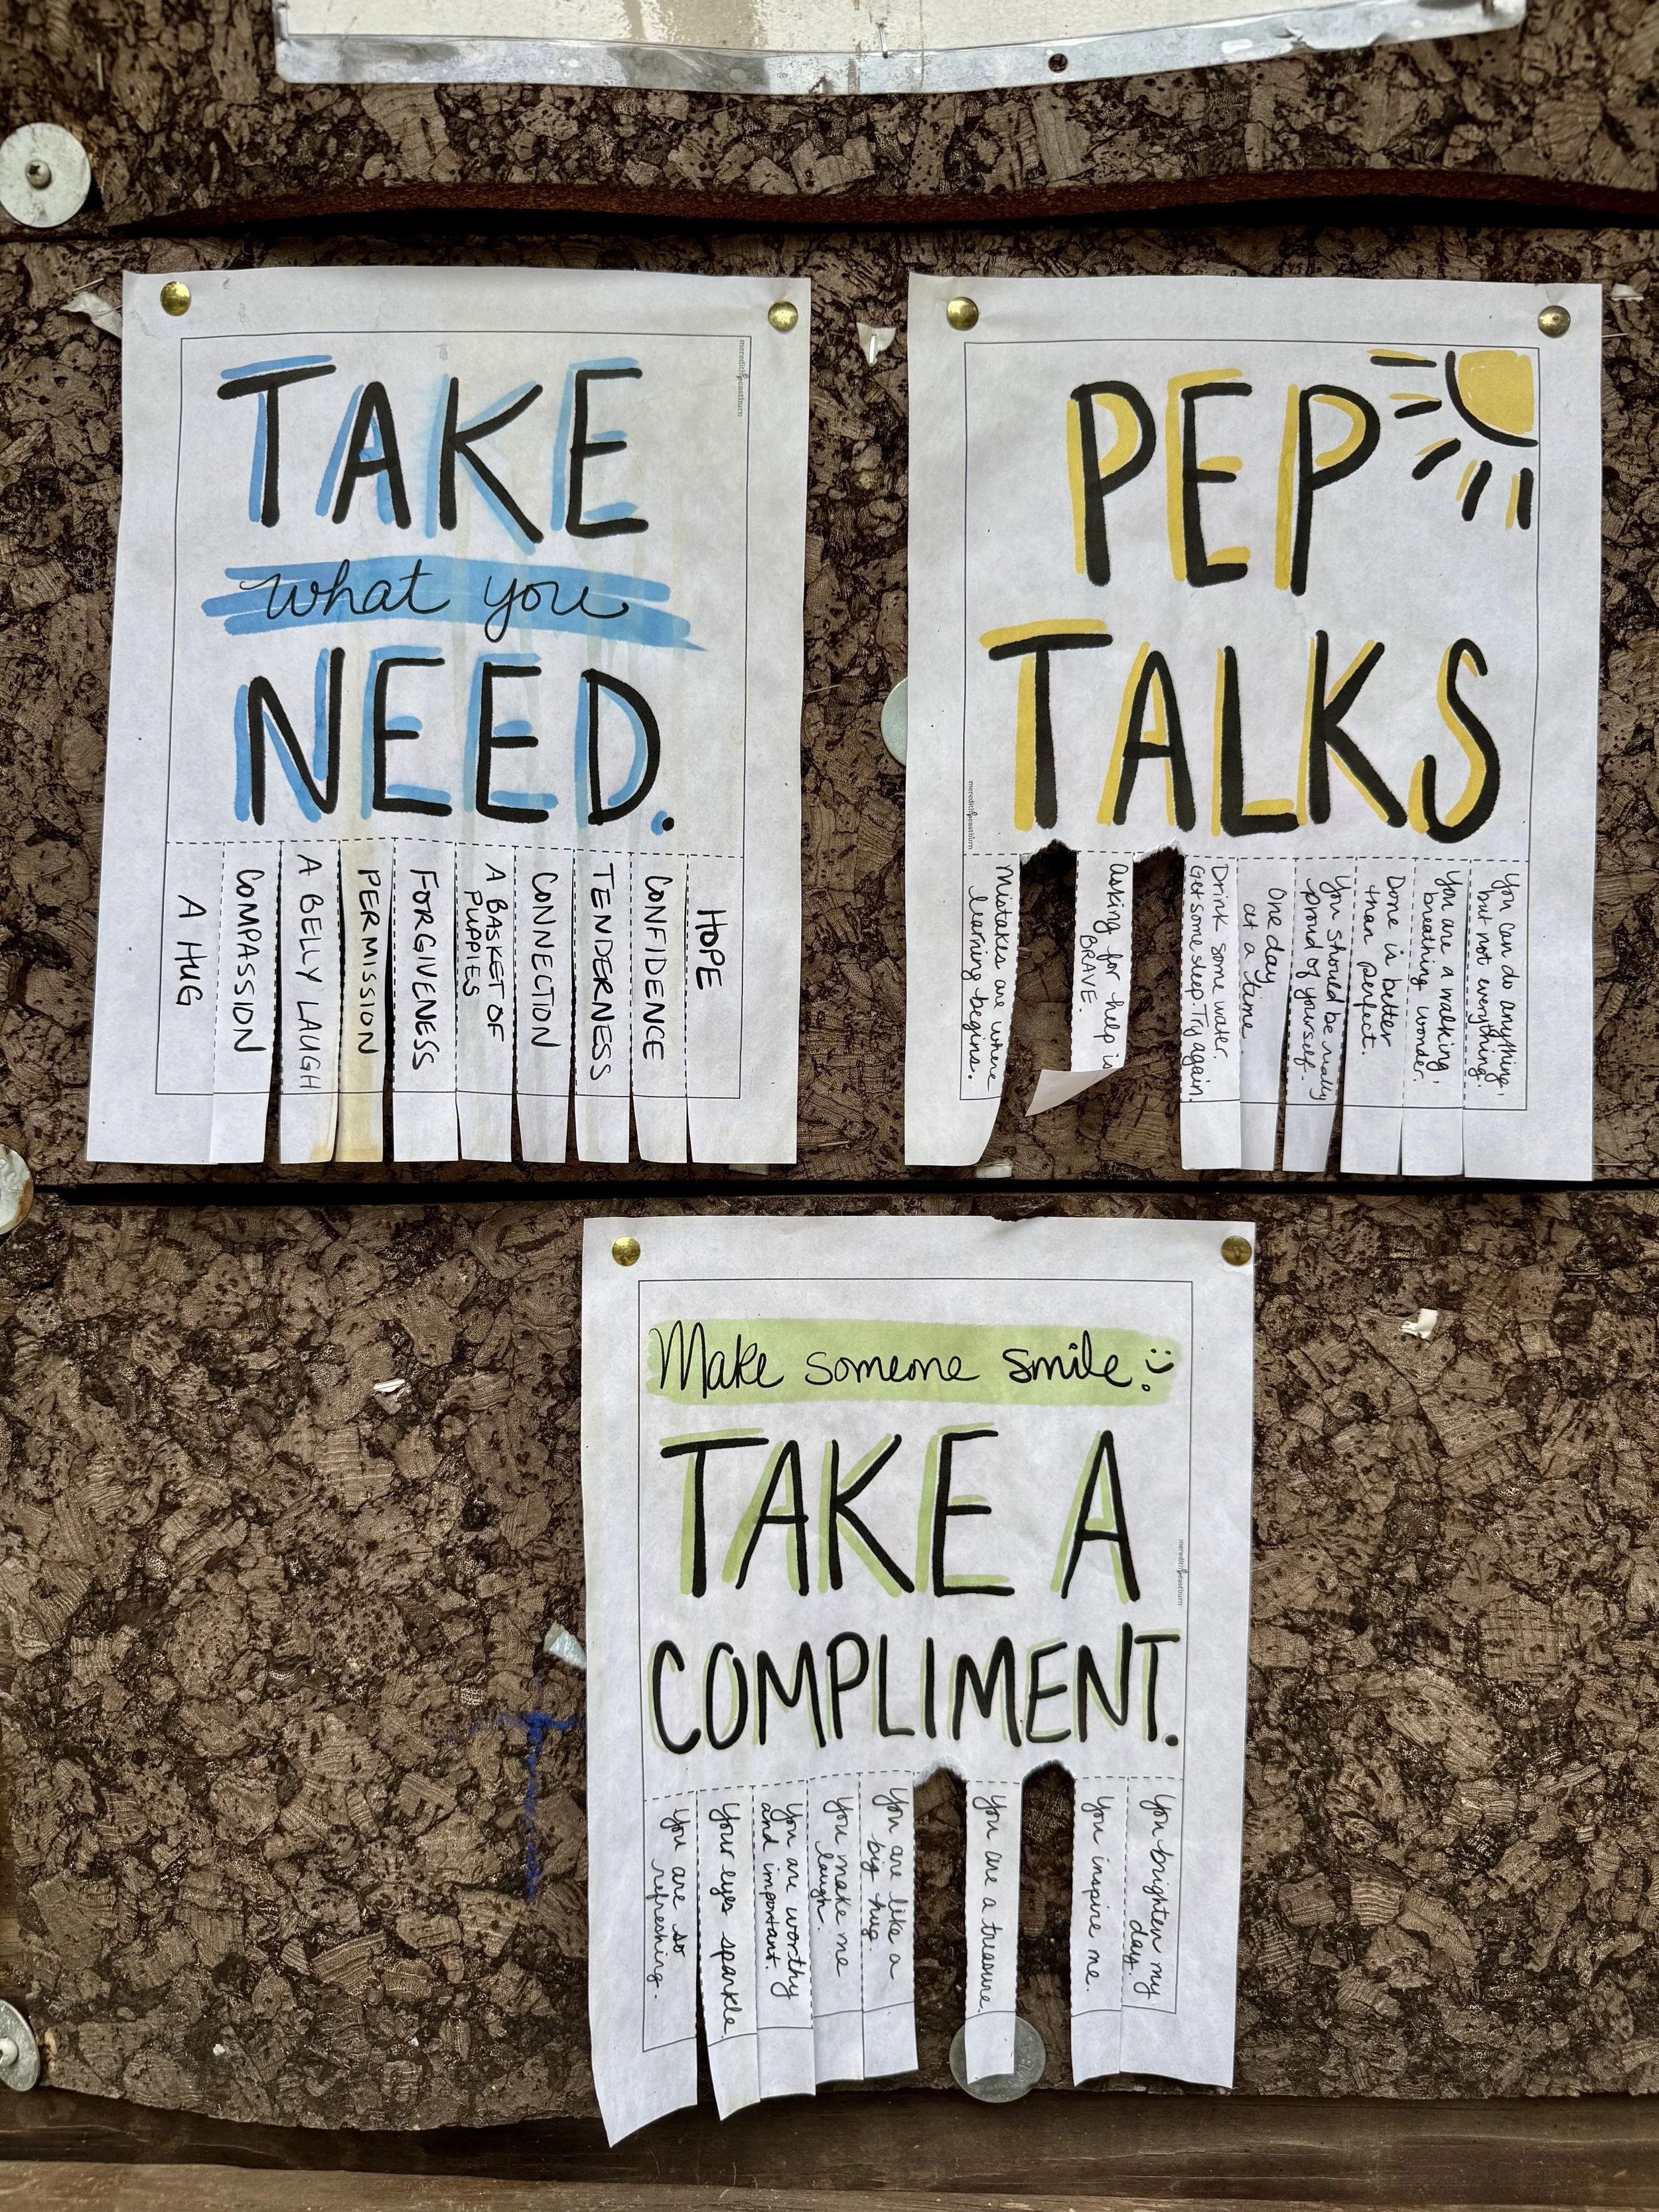 TAKE
what you
NEED.
meredith eastburn
A HUG
COMPASSION
A BELLY LAUGH
PERMISSION
FORGIVENESS
A BASKET OF
PUPPIES
CONNECTION
TENDERNESS
CONFIDENCE
HOPE
PEP
TALKS
meredith eastburn
Mistakes are where
learning begins.
Asking for help is
BRAVE.
Drink some water.
Get some sleep. Try again.
One day
at a time.
You should be really
proud of yourself.
Done is better
than perfect.
You are a walking,
breathing wonder.
You can do anything,
but not everything.
Make someone smile. :)
TAKE A
COMPLIMENT.
meredith eastburn
You are so
refreshing.
Your eyes sparkle.
You are worthy
and important.
You make me
laugh.
You are like a
big hug.
You are a treasure.
You inspire me.
You brighten my
day.